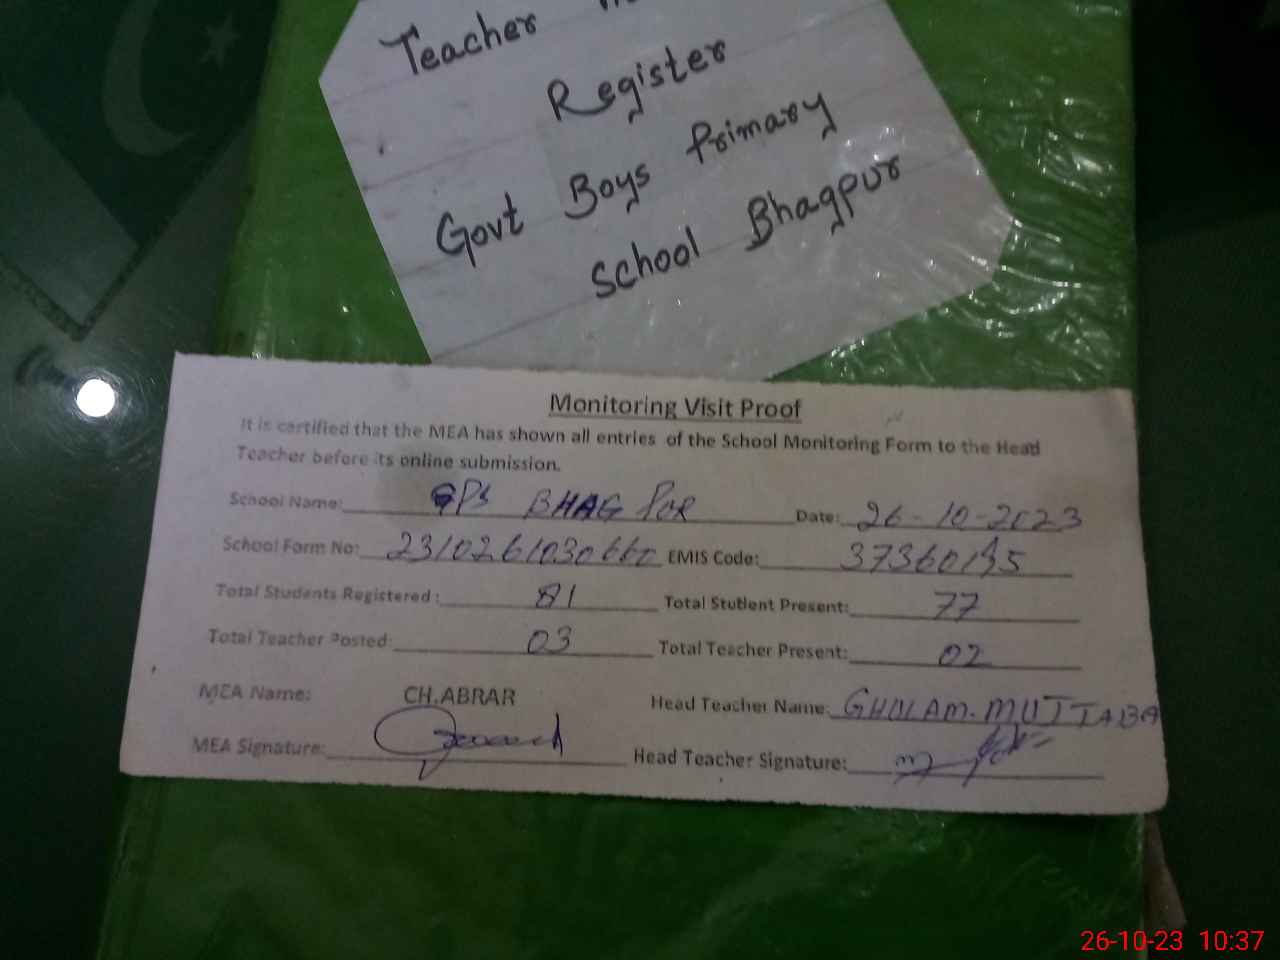 Teacher
Register
Govt Boys Primary
School Bhagpur
Monitoring Visit Proof
It is certified that the MEA has shown all entries of the School Monitoring Form to the Head
Teacher before its online submission.
School Name: GPS BHAG PUR Date: 26-10-2023
School Form No: 2310261030660 EMIS Code:
Total Students Registered: 81 Total Student Present: 77
Total Teacher Posted: 03 Total Teacher Present: 02
MEA Name: CH.ABRAR Head Teacher Name: GHULAM. MUJTABA
MEA Signature: Head Teacher Signature:
26-10-23 10:37